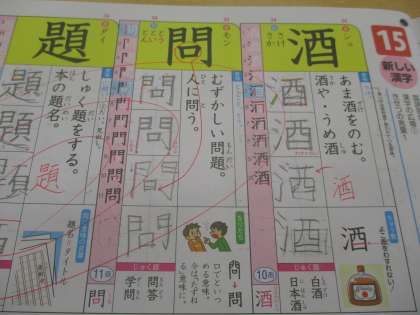 15
新しい
漢字
シュ
さけ
さか
酒
あま酒をのむ。
酒や・うめ酒
酒
酒
酒
酒
酒
10画
酒
じゅく語
白酒
日本酒
モン
とう
とい
とん
問
むずかしい問題。
人に問う。
問
問
問
問→問
口でといつ
める意味。
今は、たずね
る意味に。
11画
問
じゅく語
問答
学問
ダイ
題
しゅく題をする。
本の題名。
題
題
題
題
題名=タイトル